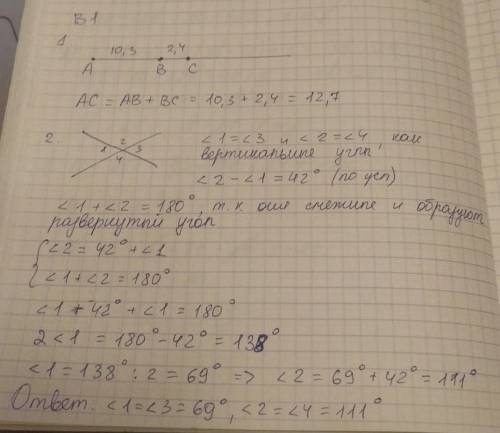 В1
1
10,3 2,4
А В С
АС = АВ + ВС = 10,3 + 2,4 = 12,7
2
1 2 3 4
∠1=∠3 и ∠2=∠4, как
вертикальные углы,
∠2 - ∠1 = 42° (по усл)
∠1 + ∠2 = 180°, т.к. они смежные и образуют
развернутый угол
{∠2 = 42° + ∠1
∠1 + ∠2 = 180°
∠1 + 42° + ∠1 = 180°
2∠1 = 180° - 42° = 138°
∠1 = 138° : 2 = 69° => ∠2 = 69° + 42° = 111°
Ответ. ∠1=∠3 = 69°, ∠2=∠4 = 111°